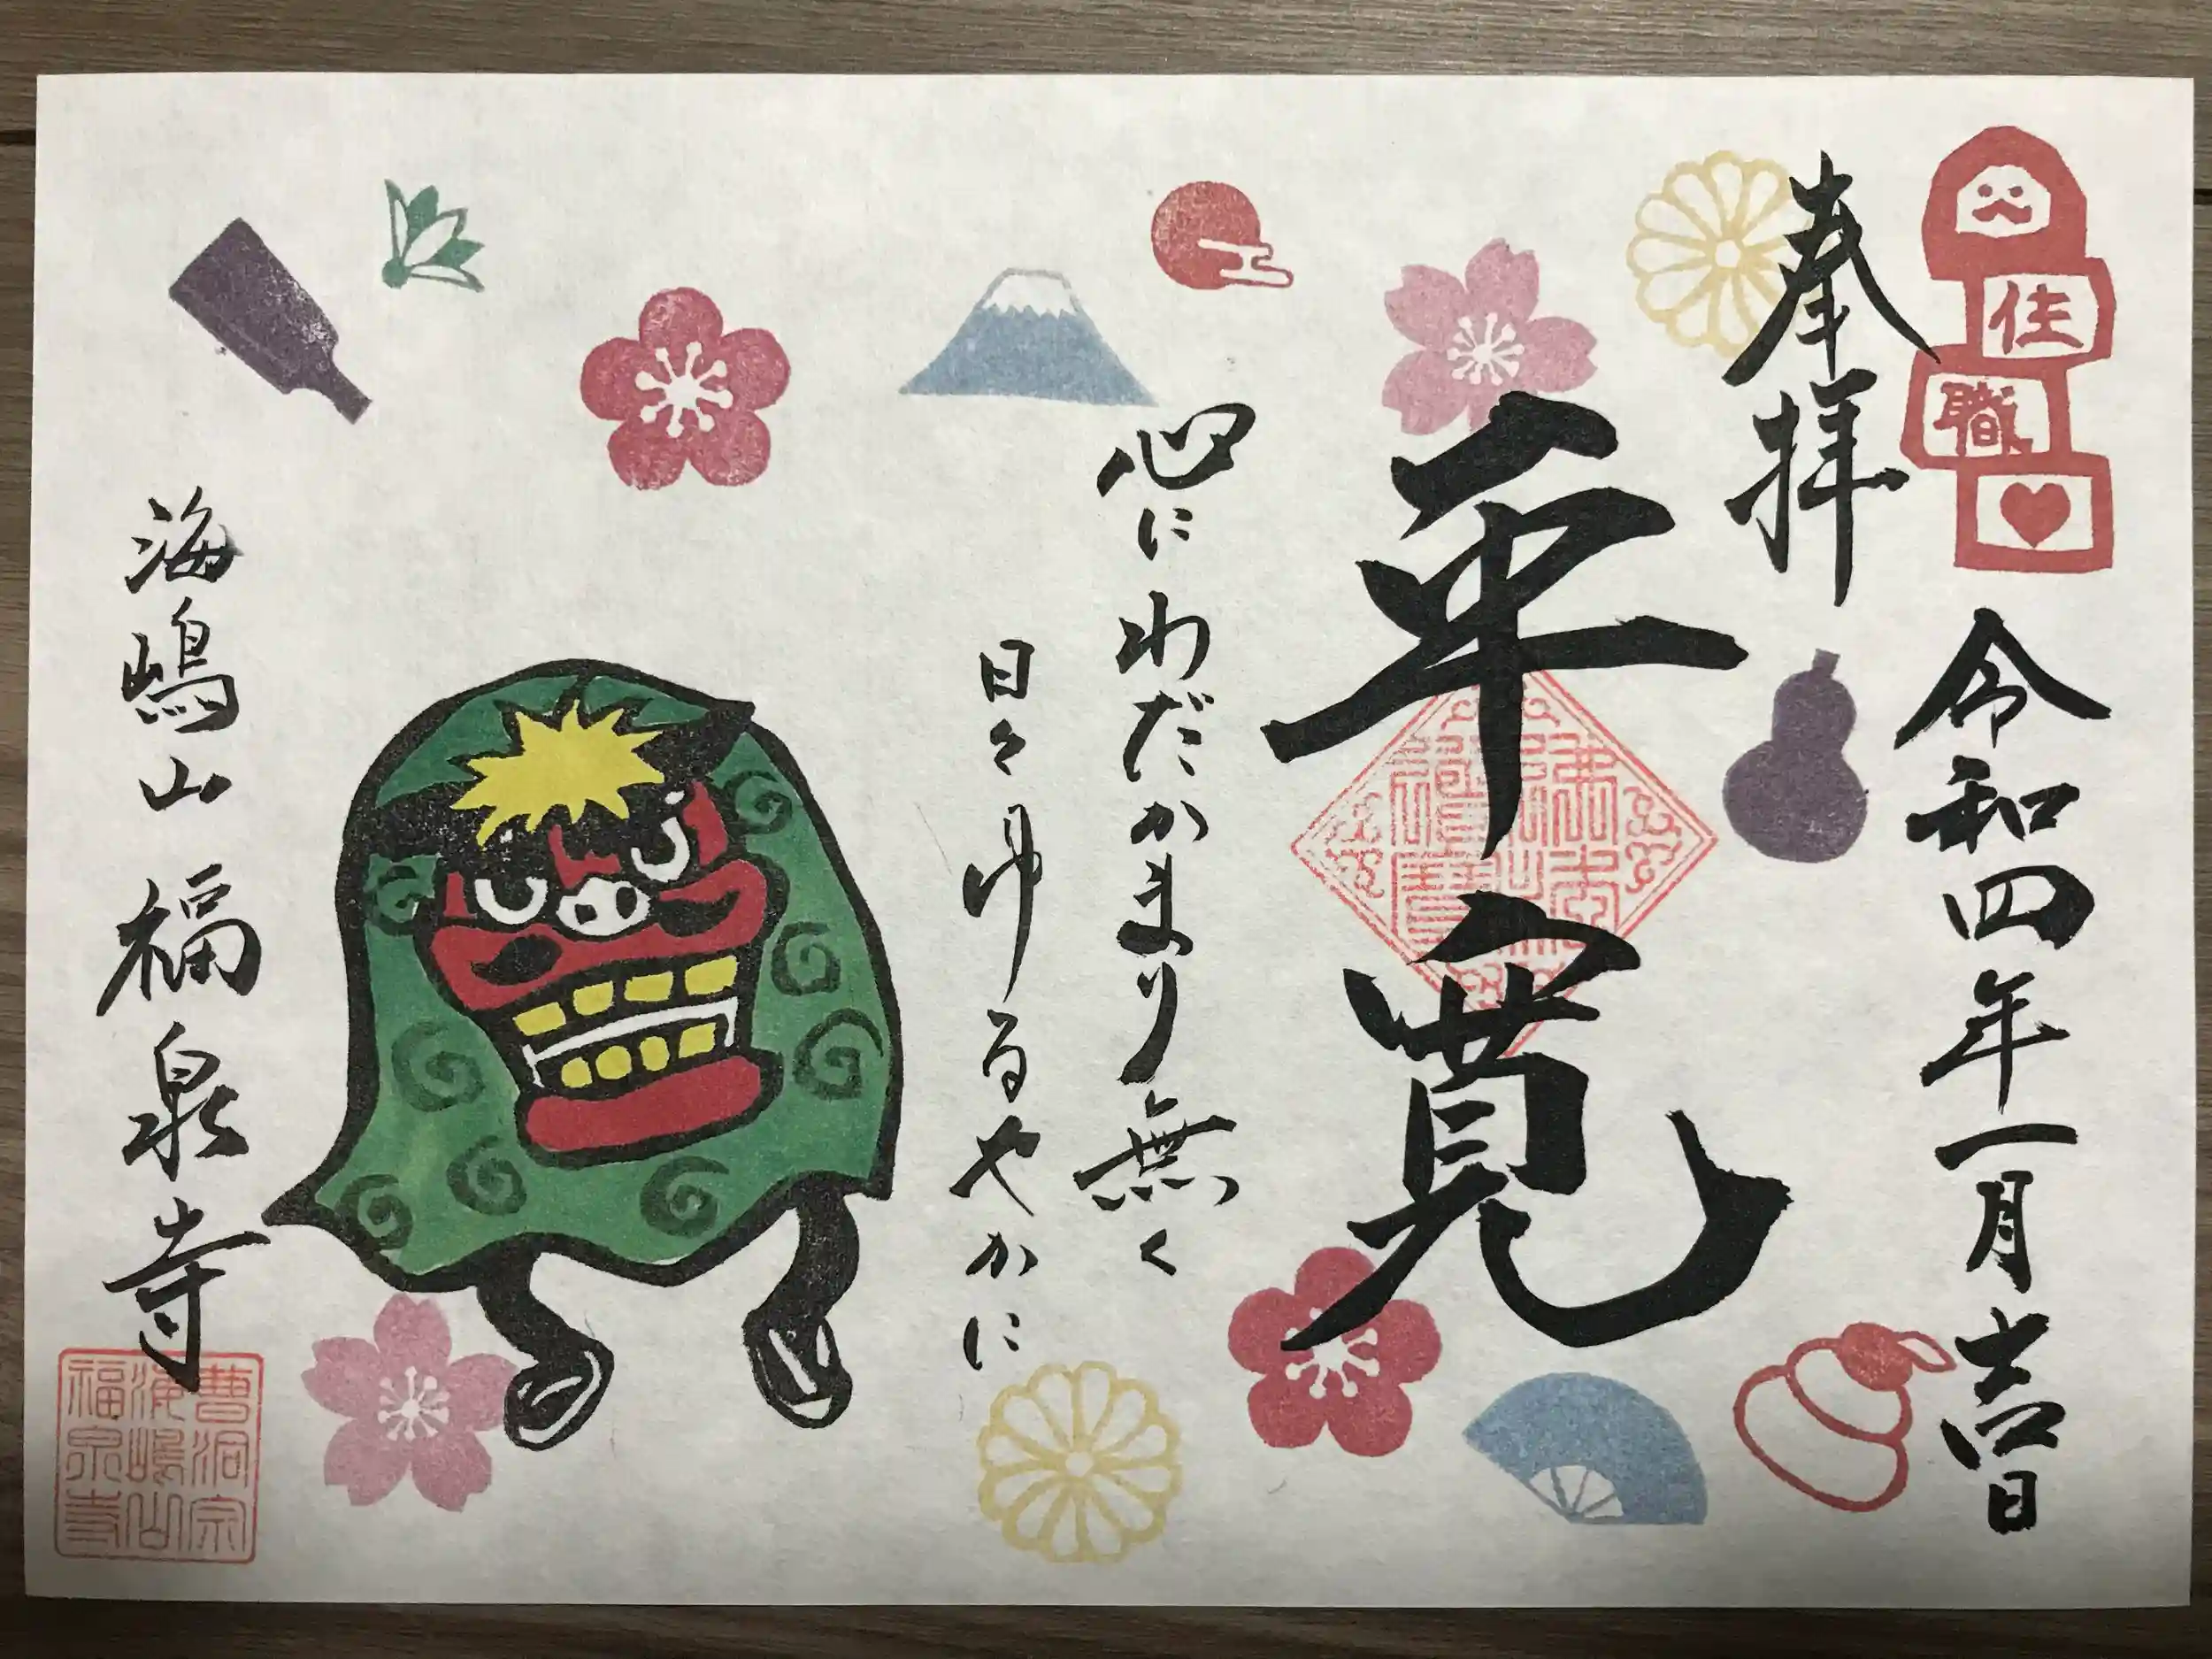 住職
奉拝
令和四年一月吉日
平寛
心にわだかまり無く
日々ゆるやかに
海嶋山福泉寺
曹洞宗
海嶋山
福泉寺